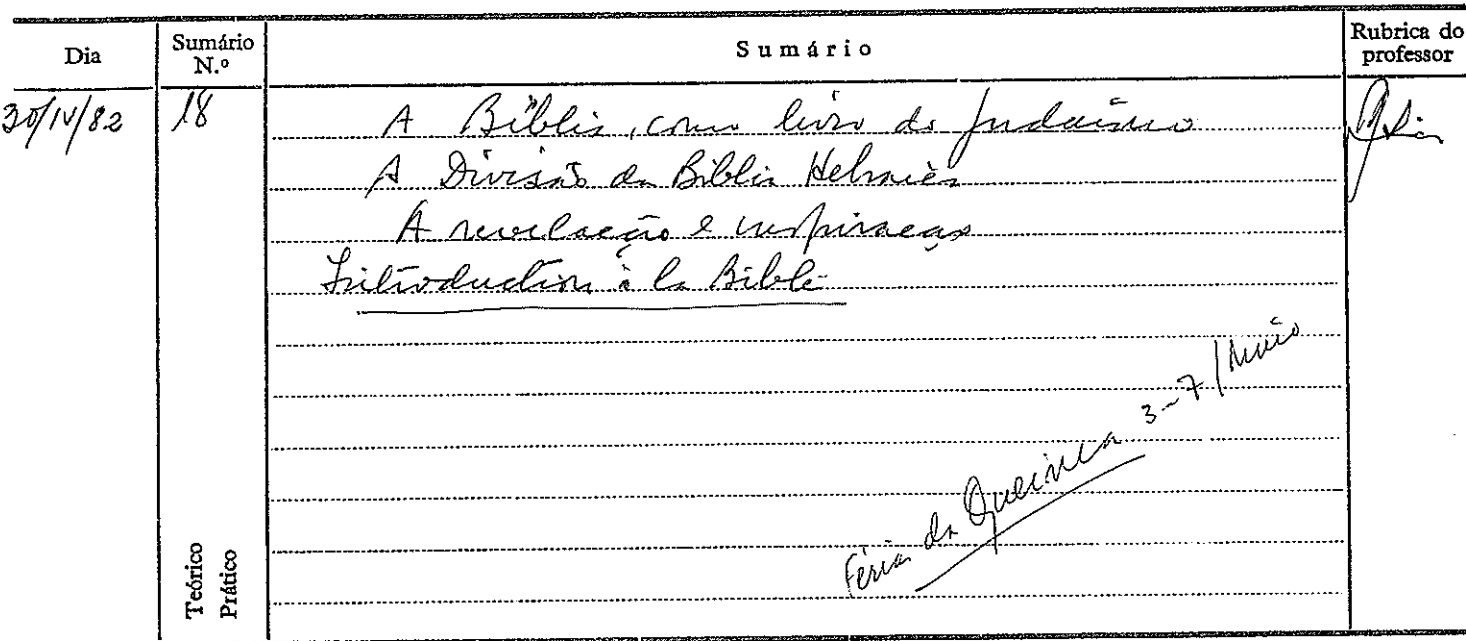 Dia
Sumário N.º
Sumário
Rubrica do professor
30/IV/82
18
A Bíblia, como livro do Judaísmo
A Divisão da Biblia Hebraica
A revelação e inspiração
Introduction à la Bible
Féria da Queima 3-7/Maio
Teórico
Prático